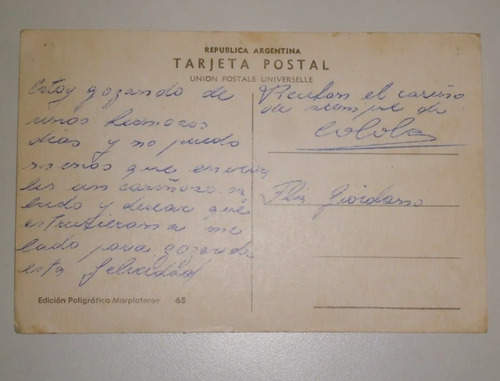 REPUBLICA ARGENTINA
TARJETA POSTAL
UNION POSTALE UNIVERSELLE
Estoy gozando de
unos hermosos
dias y no puedo
menos que enviar
les un cariñoso sa
ludo y desear que
estuvieran a mi
lado para gozar de
esta felicidad
Reciban el cariño
de siempre de
Colola
Giordano
Edición Poligráfica Marplatense 65